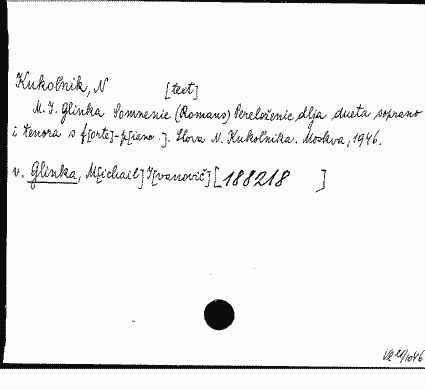 Kukoľnik, N [text]
M. I. Glinka Somnenie (Romans) Pereloženie dlja dueta soprano
i tenora s f[orte]-p[iano]. Slova N. Kukoľnika. Moskva, 1946.
v. Glinka, M[ichail] I[vanovič] [188218 ]